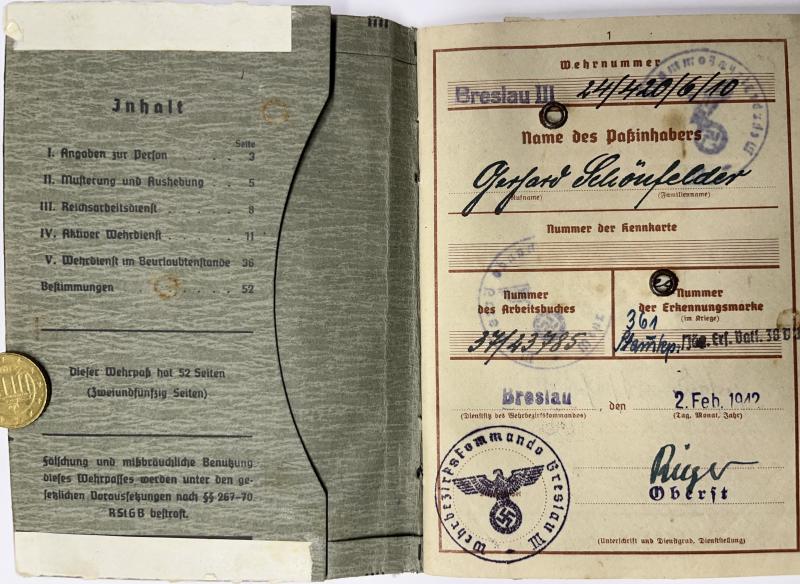 Inhalt
Seite
I. Angaben zur Person . . . 3
II. Musterung und Aushebung . 5
III. Reichsarbeitsdienst . . . 8
IV. Aktiver Wehrdienst . . . 11
V. Wehrdienst im Beurlaubtenstande 36
Bestimmungen . . . 52
Dieser Wehrpaß hat 52 Seiten
(Zweiundfünfzig Seiten)
Fälschung und mißbräuchliche Benutzung
dieses Wehrpasses werden unter den ge-
setzlichen Voraussetzungen nach §§ 267-70
RStGB bestraft.
1
Wehrnummer
Breslau III 24/420/6/10
Name des Paßinhabers
Gerhard Schönfelder
(Rufname) (Familienname)
Nummer der Kennkarte
Nummer
des Arbeitsbuches
37/23785
Nummer
der Erkennungsmarke
(im Kriege)
361
Stammkp. Ers. Batl. 38
Breslau, den 2. Feb. 1942
(Dienstsitz des Wehrbezirkskommandos) (Tag, Monat, Jahr)
Wehrbezirkskommando Breslau III
Oberst
(Unterschrift und Dienstgrad, Dienststellung)